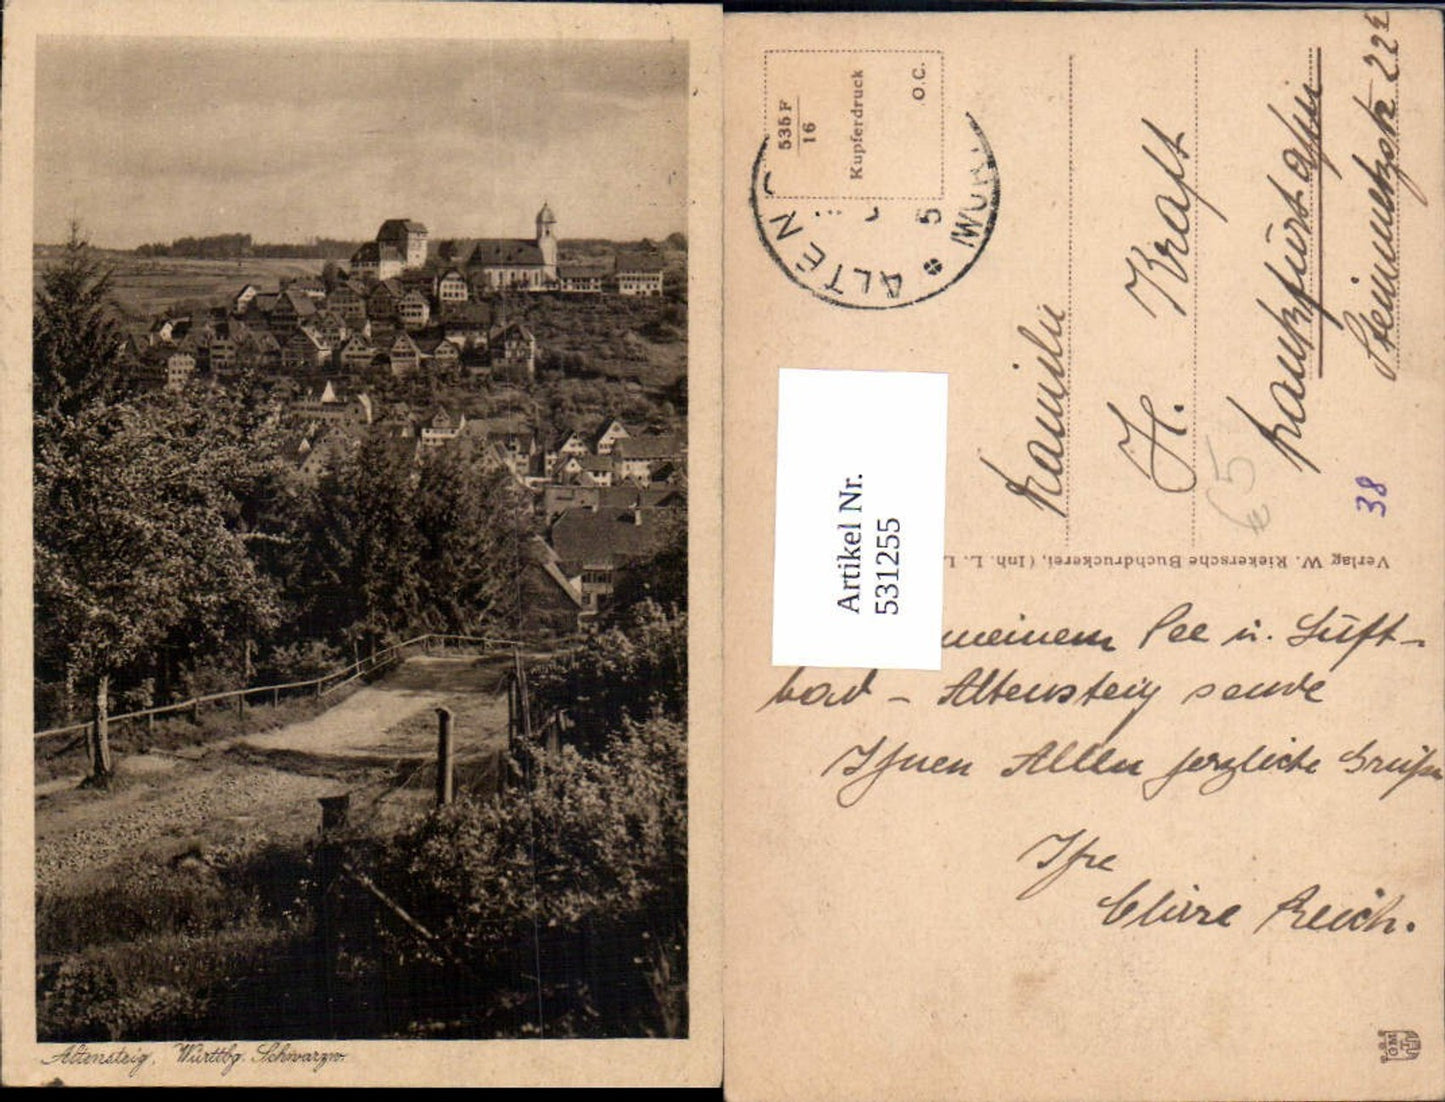 Altensteig. Württbg. Schwarzw.
535 F
16
Kupferdruck
O.C.
ALTEN
(WÜR
5
Familie
H. Kraft
Frankfurt a/Main
Steinmetzstr. 22
€ 5
38
Artikel Nr.
531255
Verlag W. Riekersche Buchdruckerei, (Inh. L. L
meinem See u. Luft-
bad – Altensteig sende
Ihnen Allen herzliche Grüße
Ihre
Claire Reich.